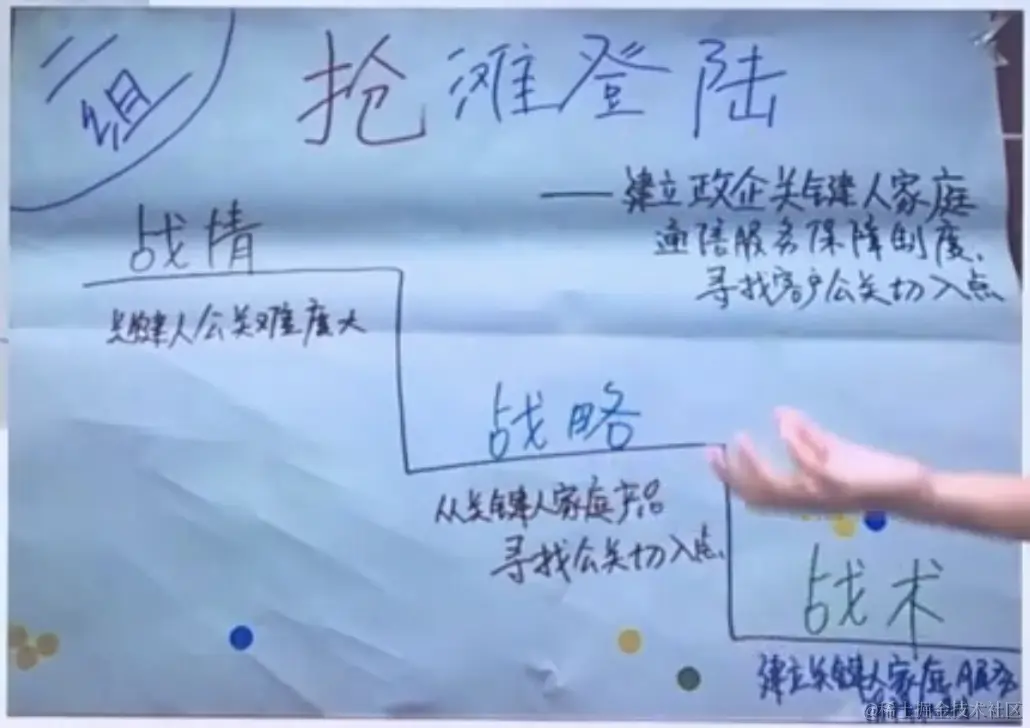 二组
抢滩登陆
——建立政企关键人家庭
通信服务保障制度、
寻找客户公关切入点
战情
关键人公关难度大
战略
从关键人家庭产品
寻找公关切入点、
战术
建立关键人家庭服务
@稀土掘金技术社区